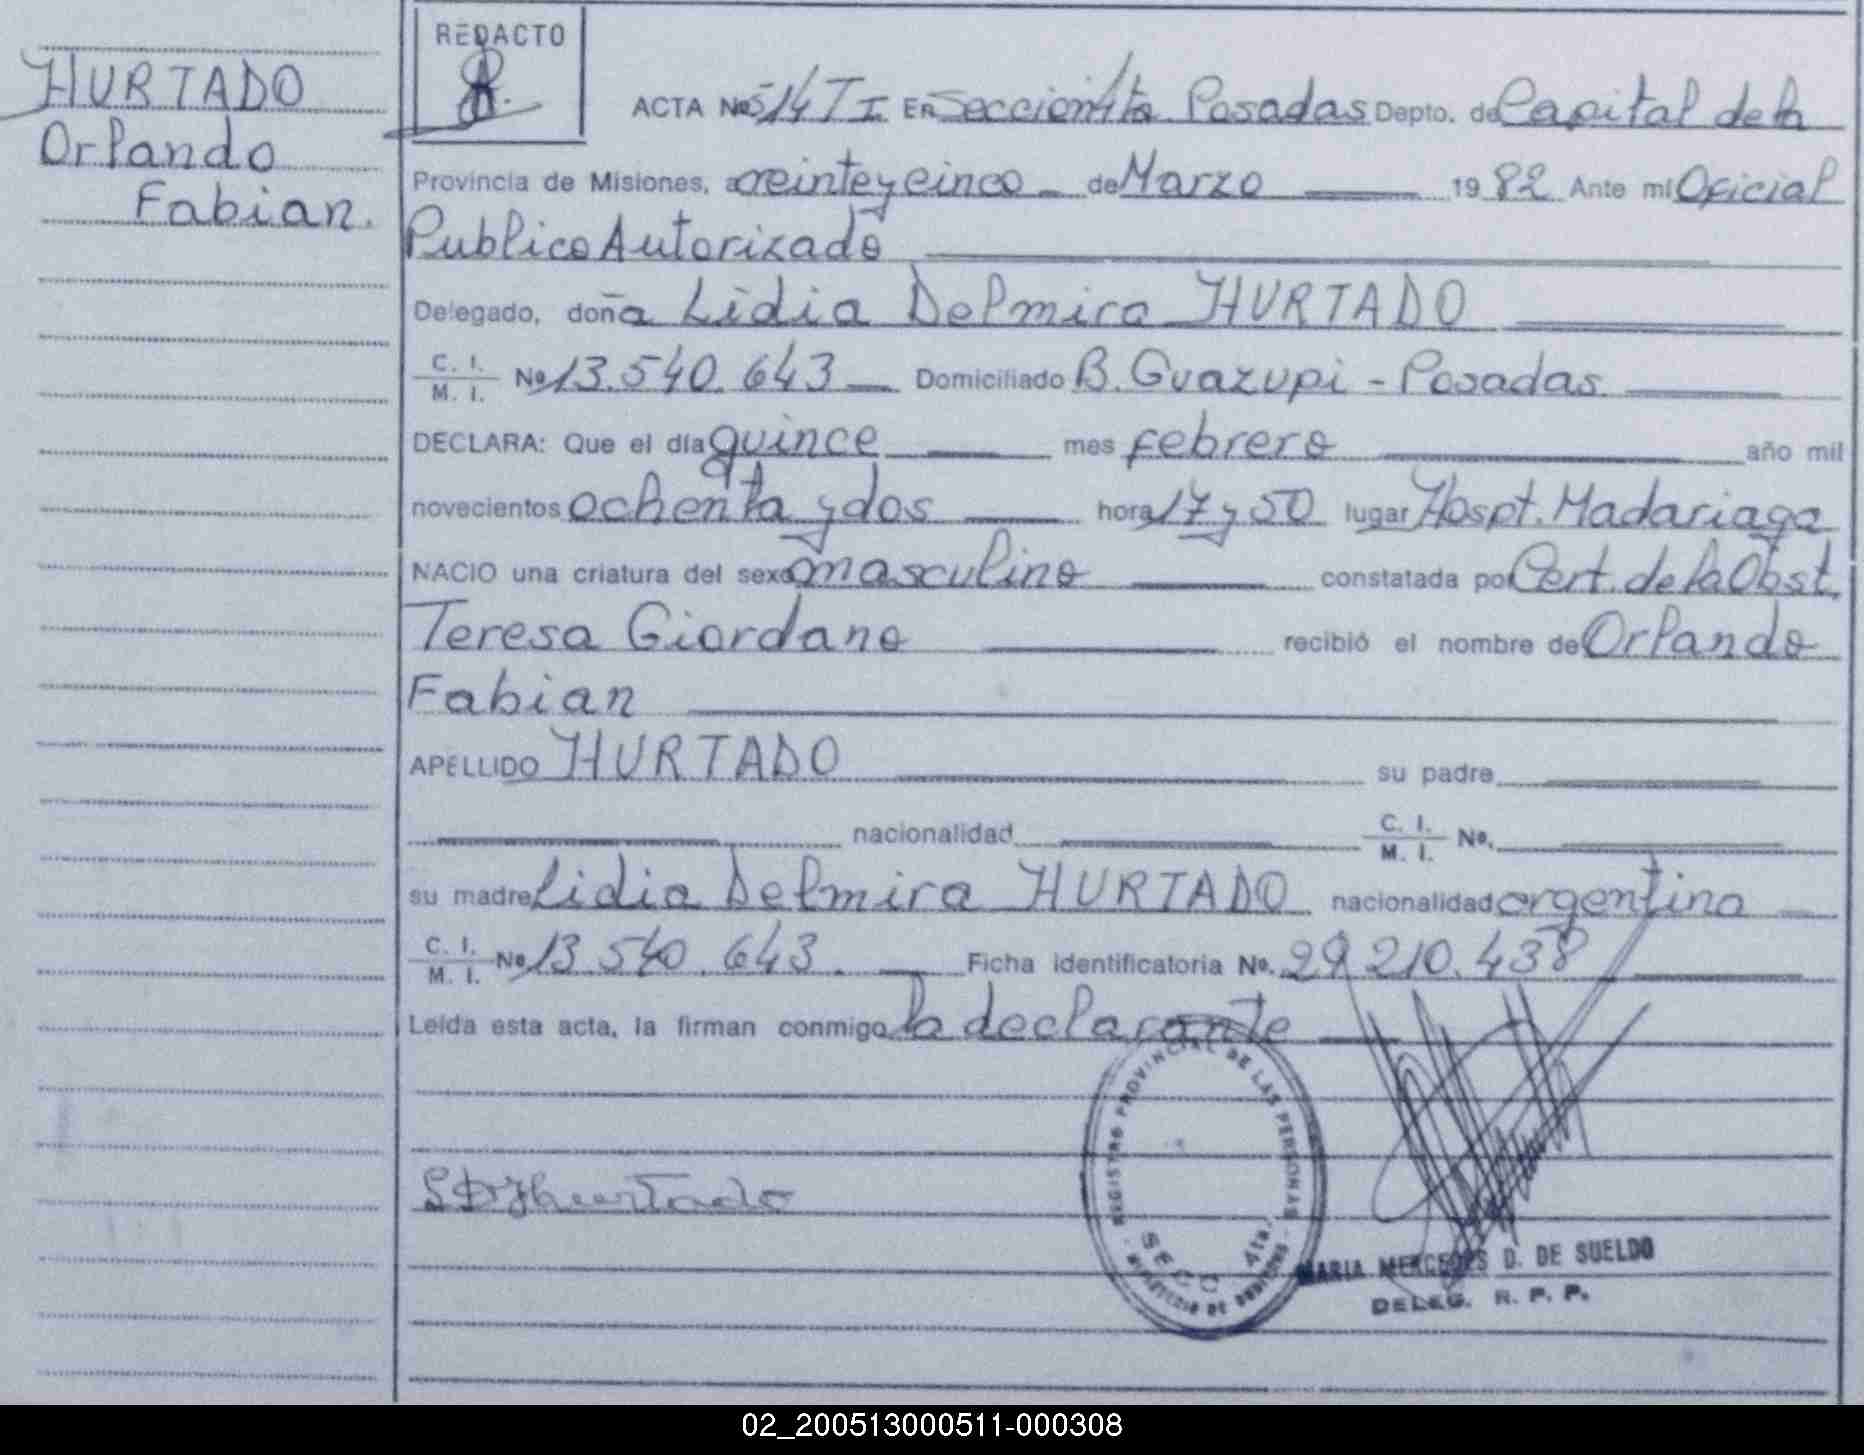 HURTADO
Orlando
Fabian.
REDACTO
ACTA Nº 514 T I En Sección 4ta Posadas Depto. de Capital de la
Provincia de Misiones, a veinte y cinco de Marzo 1982 Ante mi Oficial
Publico Autorizado
Delegado, doña Lidia Delmira HURTADO
C. I.
M. I. Nº 13.540.643 Domiciliado B. Guazupi - Posadas
DECLARA: Que el día quince mes febrero año mil
novecientos ochenta y dos hora 17 y 50 lugar Hospt. Madariaga
NACIO una criatura del sexo masculino constatada por Cert. de la Obst.
Teresa Giordano recibió el nombre de Orlando
Fabian
APELLIDO HURTADO su padre
nacionalidad C. I.
M. I. Nº.
su madre Lidia Delmira HURTADO nacionalidad argentina
C. I.
M. I. Nº 13.540.643. Ficha identificatoria Nº. 29.210.438
Leída esta acta, la firman conmigo la declarante
REGISTRO PROVINCIAL DE LAS PERSONAS
SECC 4ta.
MINISTERIO DE GOBIERNO
hurtado
MARIA MERCEDES D. DE SUELDO
DELEG. R. P. P.
02_200513000511-000308